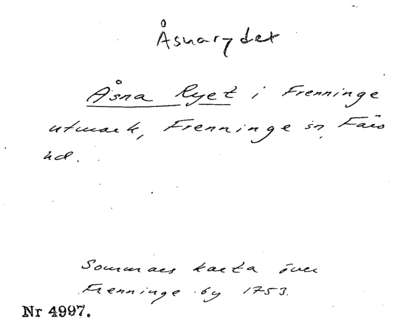 Åsnarydet
Åsna Ryet i Frenninge
utmark, Frenninge sn, Färs
hd.
Sommars karta över
Frenninge by 1753.
Nr 4997.